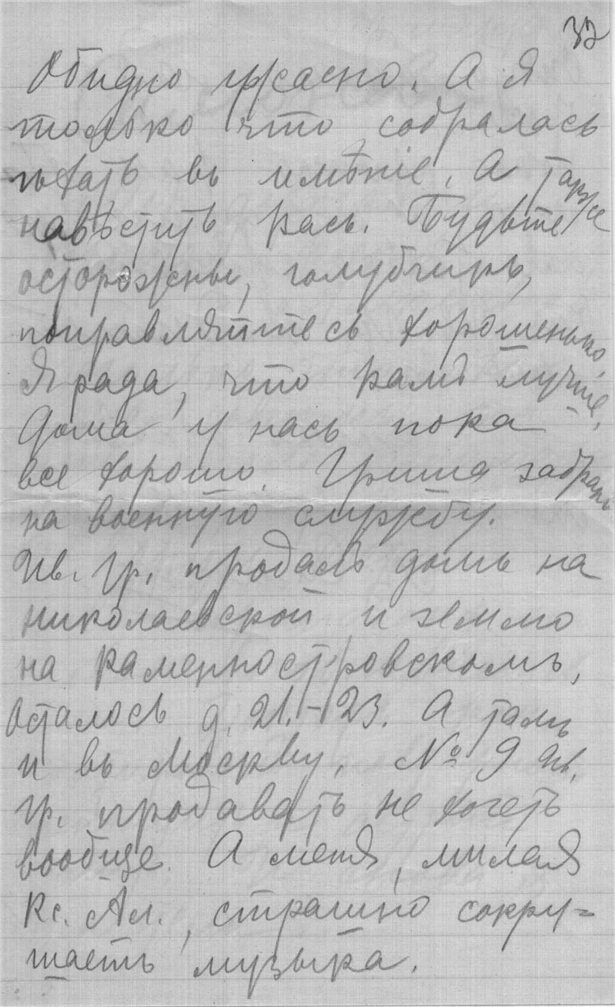 32
Обидно ужасно. А я
только что собралась
ѣхать въ имѣніе, а также
навѣстить васъ. Будьте
осторожны, голубчикъ,
поправляйтесь хорошенько,
Я рада, что вамъ лучше.
Дома у насъ пока
все хорошо. Гриша забранъ
на военную службу.
Ив. Гр. продалъ домъ на
Николаевской и землю
на Каменностровскомъ,
осталось д. 21.-23. А тамъ
и въ Москву. № 9 Ив.
Гр. продавать не хочетъ
вообще. А меня, милая
Кс. Ал., страшно сокру=
шаетъ музыка.